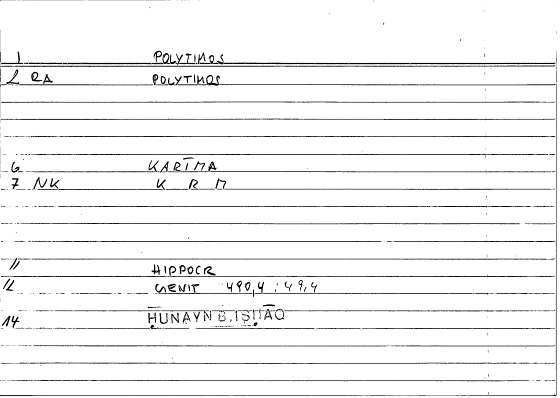 1 POLYTIMOS
2 QA POLYTIMOS
6 KARĪMA
7 NK K R M
11 HIPPOCR
12 GENIT 490,4 : 49,4
14 ḤUNAYN B. ISḤĀQ